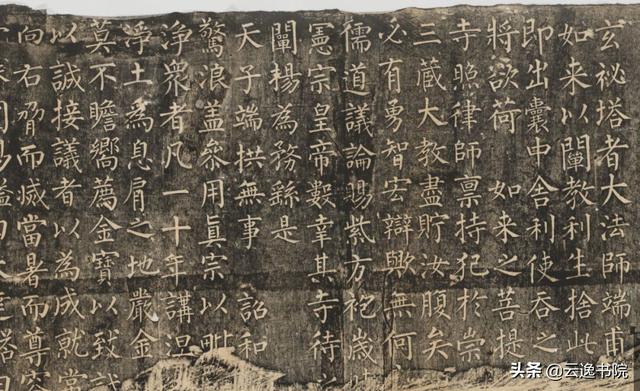 玄祕塔者大法師端甫
如来以闡教利生捨此
即出囊中舍利使吞之
將欲荷 如来之菩提
寺照律師禀持犯於崇
三藏大教盡貯汝腹矣
必有勇智宏辯歟無何
儒道議論賜紫方袍歲
憲宗皇帝數幸其寺待
闡揚為務繇是
天子端拱無事 詔和
驚浪蓋叅用真宗以毗
淨衆者凡一十年講涅
淨土為息肩之地嚴金
莫不瞻嚮薦金寶以致
以誠接議者以為成就常
向右脅而滅當暑而尊容
头条 @云逸书院